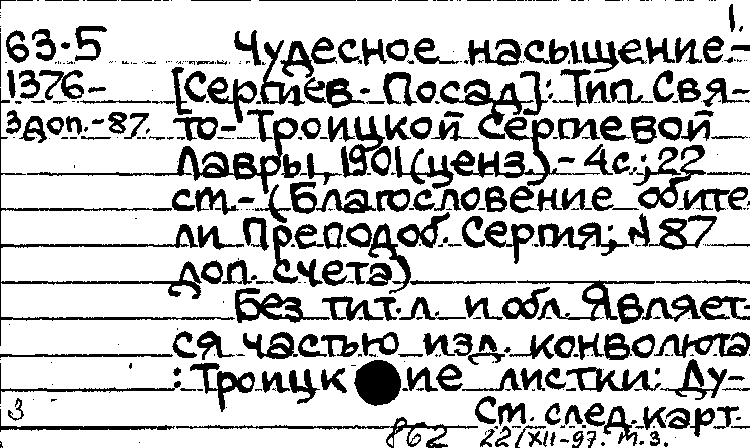 1.
63.5 Чудесное насыщение.-
1376- [Сергиев-Посад]: Тип. Свя-
3доп.-87. то-Троицкой Сергиевой
Лавры, 1901(ценз.).-4с.; 22
см.-(Благословение обите
ли Преподоб. Сергия; №87
доп. счета)
Без тит.л. и обл. Являет
ся частью изд. конволюта
: Троицкие листки: Ду-
3 См. след. карт.
862 22/XII-97. М.З.